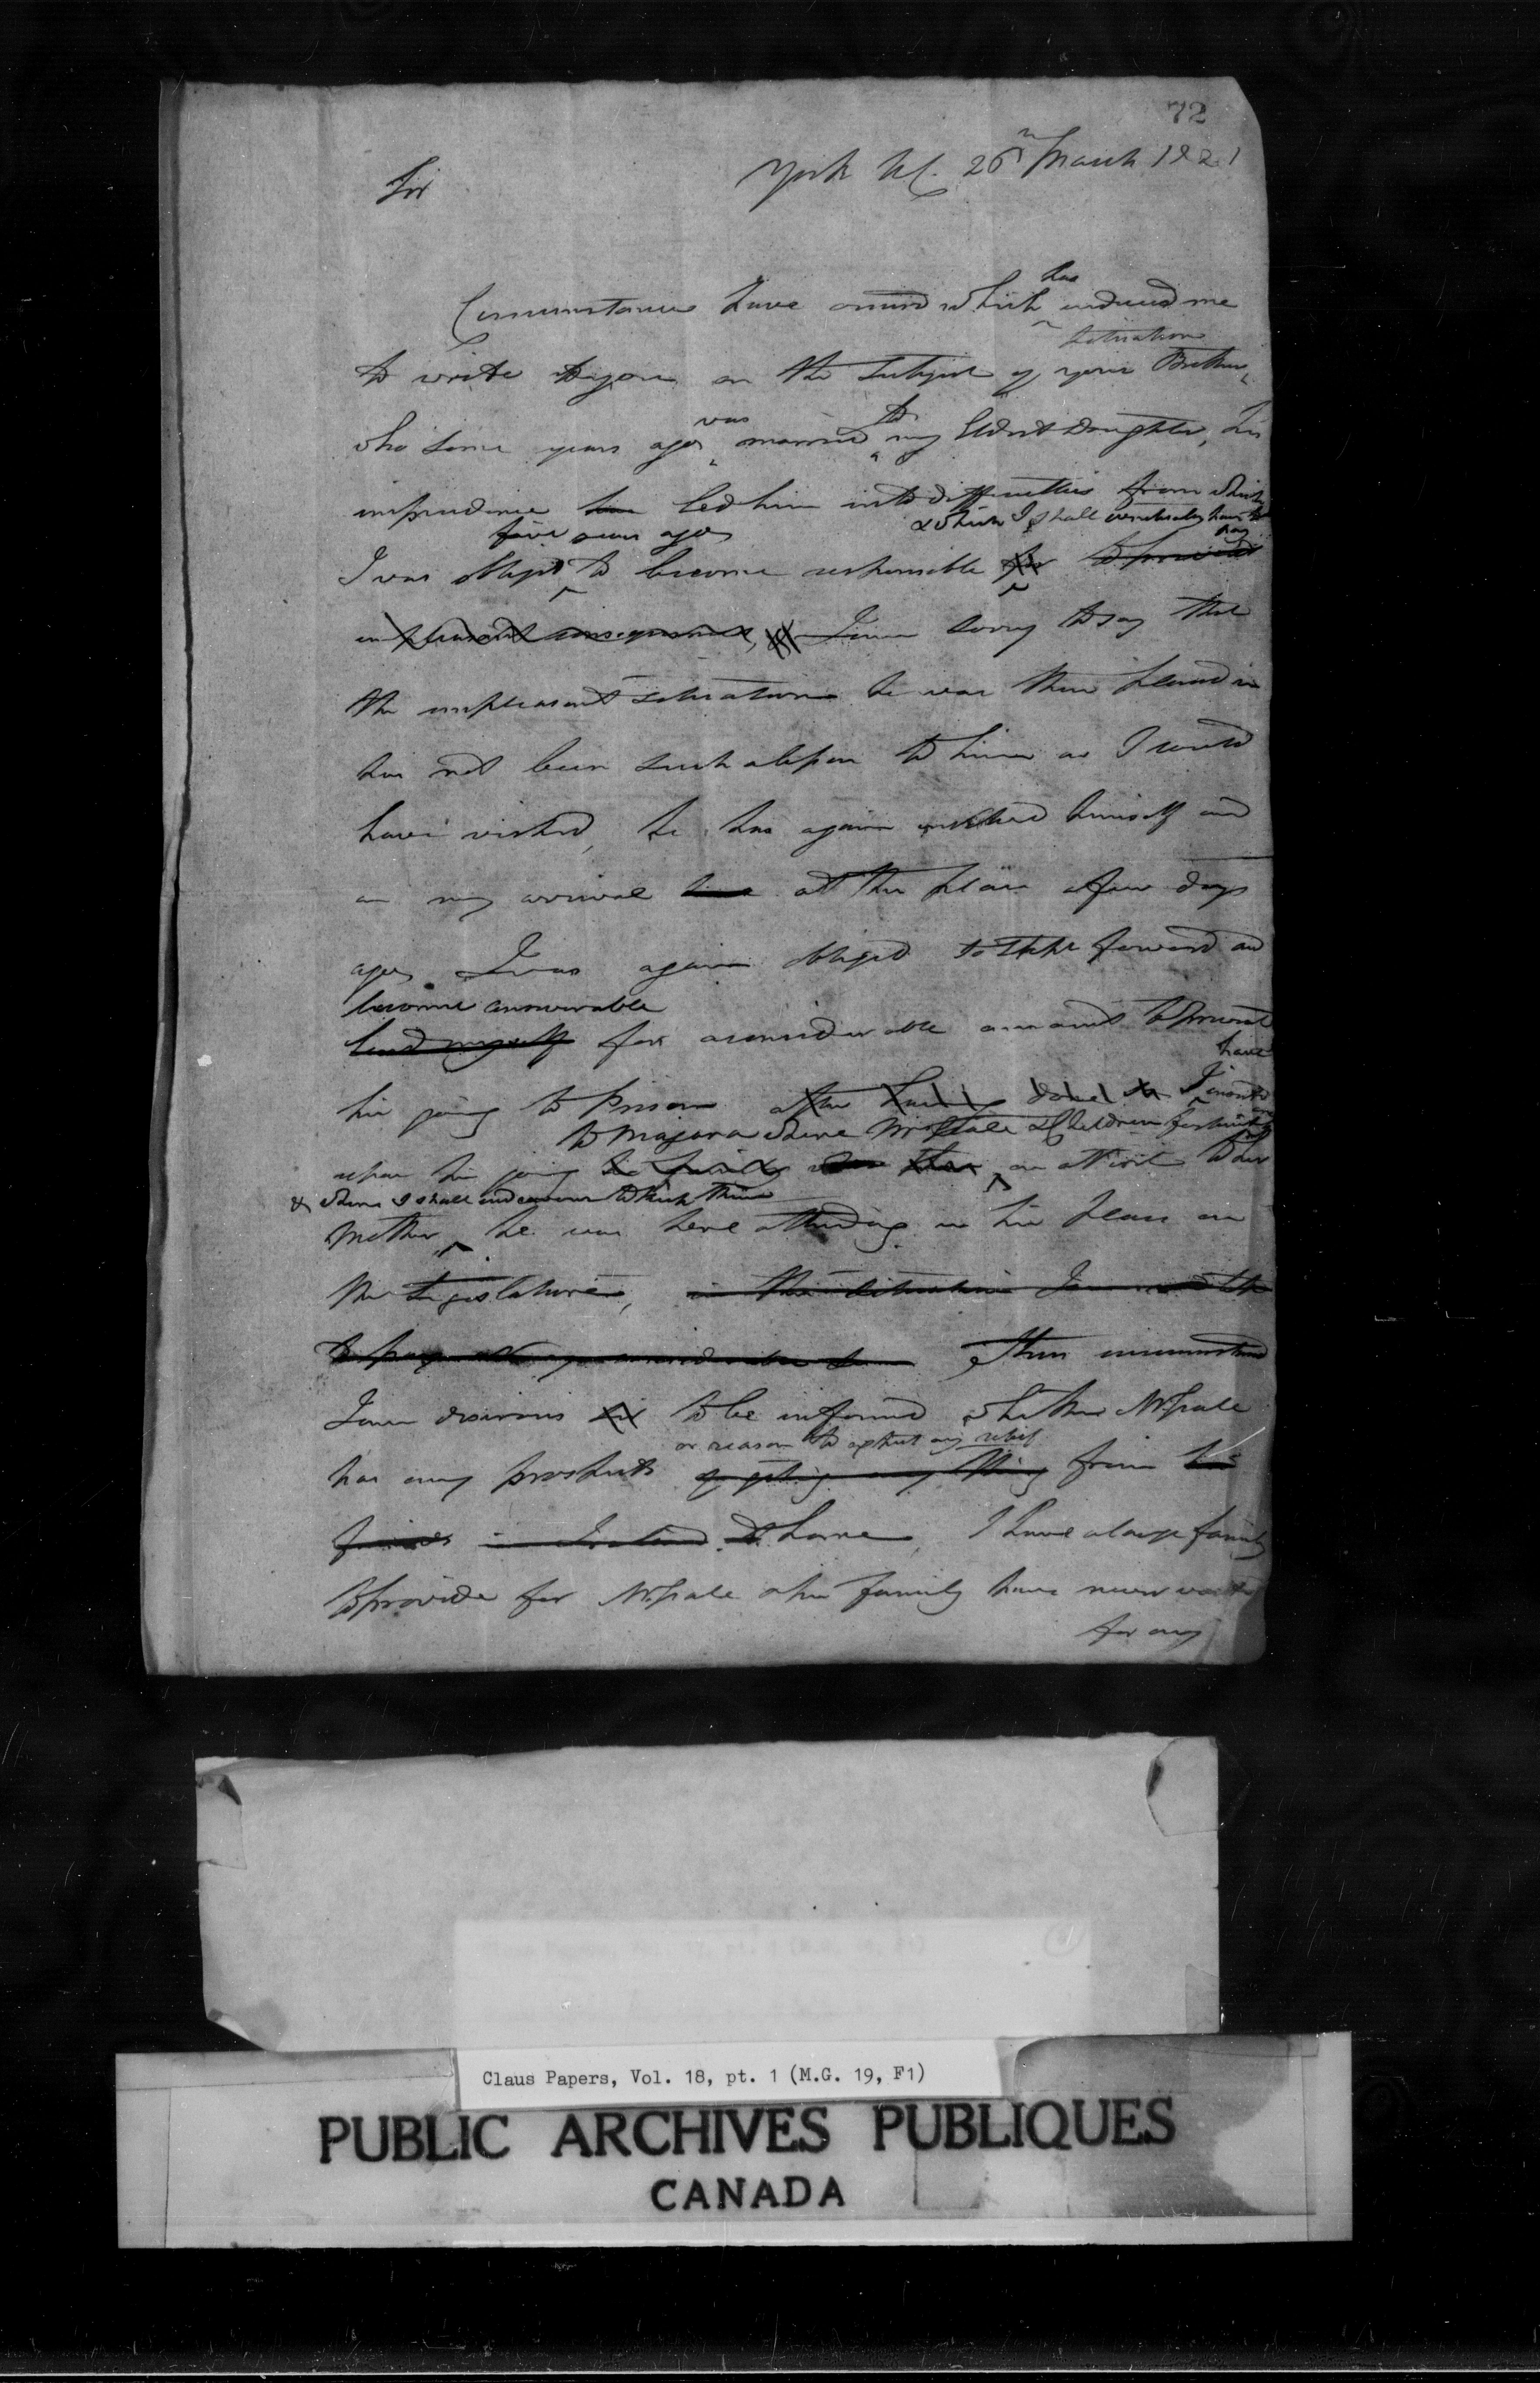 72
York UC. 26th March 1821
Sir
has
Circumstances have occurred which induced me
situation
to write to you on the subject of your Brother
was to
who some years ago married my Eldest Daughter, his
imprudence has led him into difficulties from which
five years ago & which I shall eventually have to pay
I was obliged to become responsible for to prevent
unpleasant consequences, I am sorry to say that
the unpleasant situation he was then placed in
has not been such a lesson to him as I could
have wished, he has again involved himself and
on my arrival here at this place a few days
ago I was again obliged to step forward and
become answerable
lend myself for a considerable amount to prevent
have
his going to Prison after I insisted
to Niagara where Mrs Hale & Children for
upon his going his family are then on a Visit to her
& where I shall endeavour to keep them
Mother, he was here attending in his place in
the Legislature, in this situation I
to pay These circumstances
I am desirous sir to be informed whether Mr Hale
or reason to expect any relief
has any prospects of getting any thing from his
friends in Ireland at home, I have a large family
to provide for Mr Hale & his family have never wanted
for any
Claus Papers, Vol. 18, pt. 1 (M.G. 19, F1)
PUBLIC ARCHIVES PUBLIQUES
CANADA